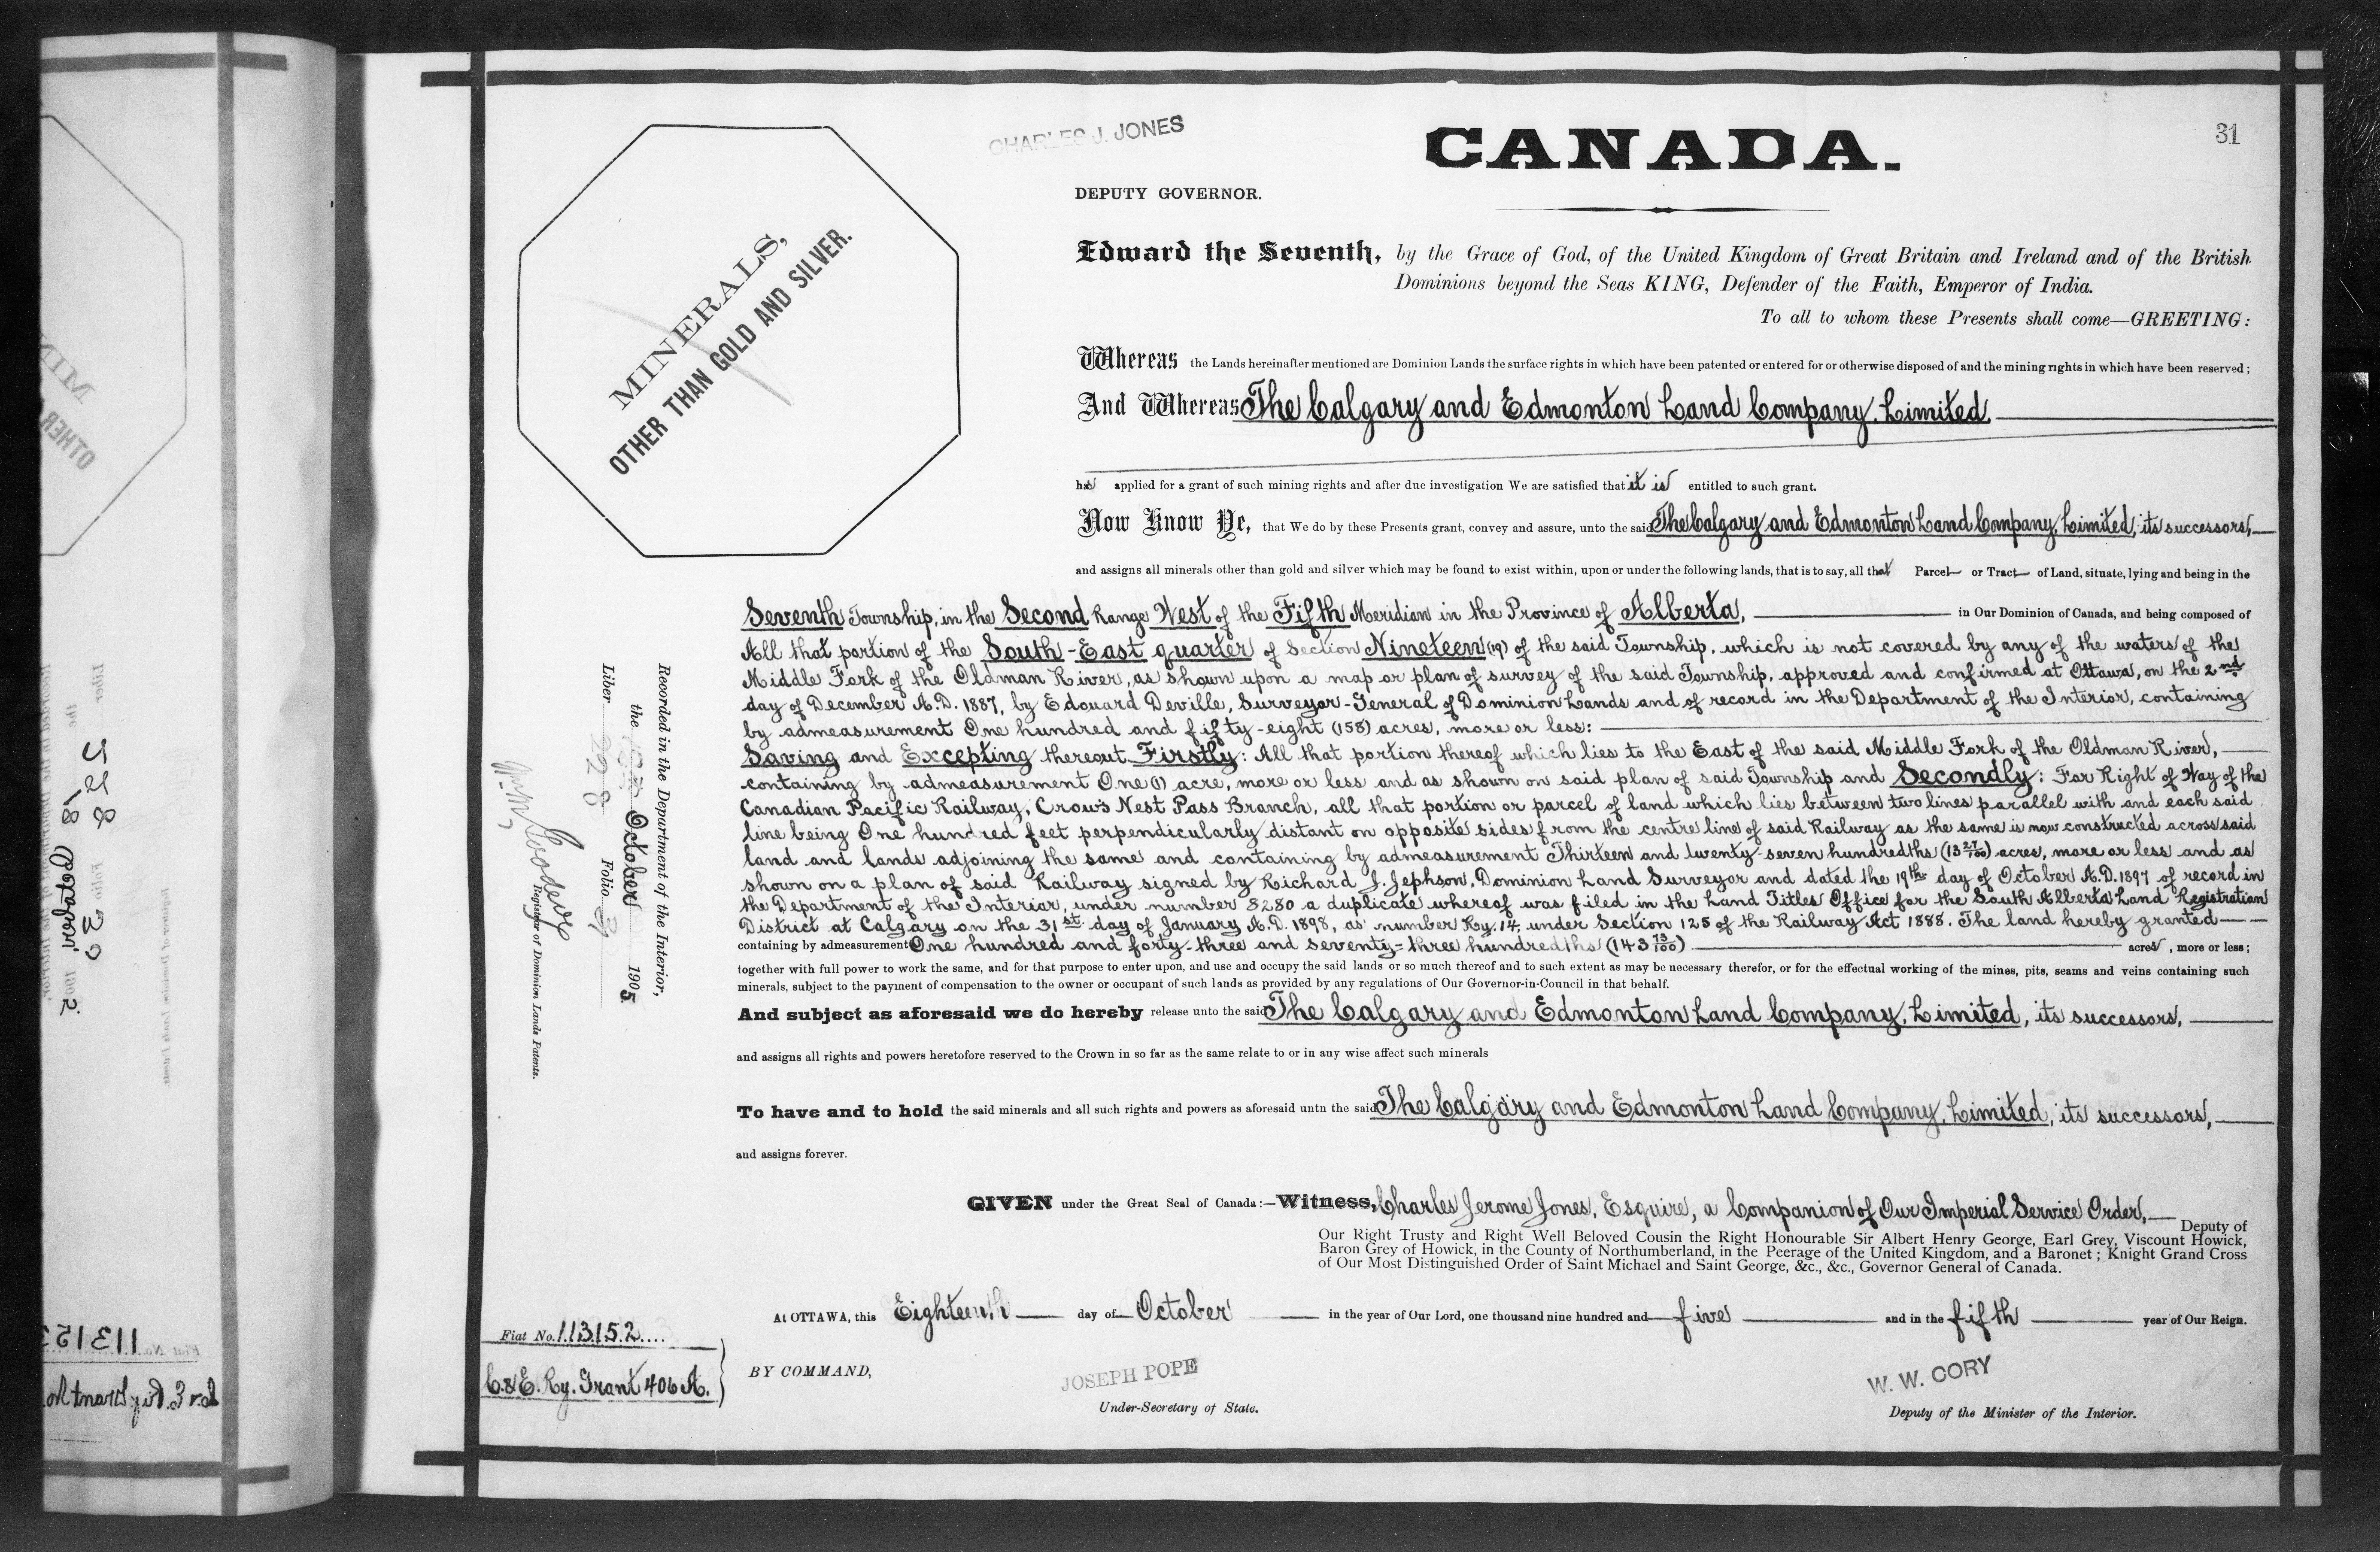 31
CHARLES J. JONES
CANADA.
DEPUTY GOVERNOR.
MINERALS,
OTHER THAN GOLD AND SILVER.
Edward the Seventh, by the Grace of God, of the United Kingdom of Great Britain and Ireland and of the British
Dominions beyond the Seas KING, Defender of the Faith, Emperor of India.
To all to whom these Presents shall come—GREETING:
Whereas the Lands hereinafter mentioned are Dominion Lands the surface rights in which have been patented or entered for or otherwise disposed of and the mining rights in which have been reserved;
And Whereas The Calgary and Edmonton Land Company, Limited
has applied for a grant of such mining rights and after due investigation We are satisfied that it is entitled to such grant.
Now Know Ye, that We do by these Presents grant, convey and assure, unto the said The Calgary and Edmonton Land Company, Limited, its successors,
and assigns all minerals other than gold and silver which may be found to exist within, upon or under the following lands, that is to say, all that Parcel or Tract of Land, situate, lying and being in the
Seventh Township, in the Second Range West of the Fifth Meridian in the Province of Alberta, in Our Dominion of Canada, and being composed of
All that portion of the South-East quarter of Section Nineteen (19) of the said Township, which is not covered by any of the waters of the
Middle Fork of the Oldman River, as shown upon a map or plan of survey of the said Township, approved and confirmed at Ottawa, on the 2nd
day of December A.D. 1887, by Edouard Deville, Surveyor-General of Dominion Lands and of record in the Department of the Interior, containing
by admeasurement One hundred and fifty-eight (158) acres, more or less:
Saving and Excepting thereout Firstly: All that portion thereof which lies to the East of the said Middle Fork of the Oldman River,
containing by admeasurement One (1) acre, more or less and as shown on said plan of said Township and Secondly: For Right of Way of the
Canadian Pacific Railway, Crow's Nest Pass Branch, all that portion or parcel of land which lies between two lines parallel with and each said
line being One hundred feet perpendicularly distant on opposite sides from the centre line of said Railway as the same is now constructed across said
land and lands adjoining the same and containing by admeasurement Thirteen and twenty-seven hundredths (13 27/100) acres, more or less and as
shown on a plan of said Railway signed by Richard J. Jephson, Dominion Land Surveyor and dated the 19th day of October A.D. 1897 of record in
the Department of the Interior, under number 8280 a duplicate whereof was filed in the Land Titles Office for the South Alberta Land Registration
District at Calgary on the 31st day of January, A.D. 1898, as number Ry. 14, under Section 125 of the Railway Act 1888. The land hereby granted
containing by admeasurement One hundred and forty-three and seventy-three hundredths (143 73/100) acres, more or less;
together with full power to work the same, and for that purpose to enter upon, and use and occupy the said lands or so much thereof and to such extent as may be necessary therefor, or for the effectual working of the mines, pits, seams and veins containing such
minerals, subject to the payment of compensation to the owner or occupant of such lands as provided by any regulations of Our Governor-in-Council in that behalf.
And subject as aforesaid we do hereby release unto the said The Calgary and Edmonton Land Company, Limited, its successors,
and assigns all rights and powers heretofore reserved to the Crown in so far as the same relate to or in any wise affect such minerals
To have and to hold the said minerals and all such rights and powers as aforesaid untn the said The Calgary and Edmonton Land Company, Limited, its successors,
and assigns forever.
GIVEN under the Great Seal of Canada:—Witness, Charles Jerome Jones, Esquire, a Companion of Our Imperial Service Order,
Deputy of
Our Right Trusty and Right Well Beloved Cousin the Right Honourable Sir Albert Henry George, Earl Grey, Viscount Howick,
Baron Grey of Howick, in the County of Northumberland, in the Peerage of the United Kingdom, and a Baronet; Knight Grand Cross
of Our Most Distinguished Order of Saint Michael and Saint George, &c., &c., Governor General of Canada.
At OTTAWA, this Eighteenth day of October in the year of Our Lord, one thousand nine hundred and five and in the fifth year of Our Reign.
BY COMMAND,
JOSEPH POPE
Under-Secretary of State.
W. W. CORY
Deputy of the Minister of the Interior.
Fiat No. 113152
C. & E. Ry. Grant 406 A.
Recorded in the Department of the Interior,
the October 1905
Liber 228 Folio 31
Registrar of Dominion Lands Patents.